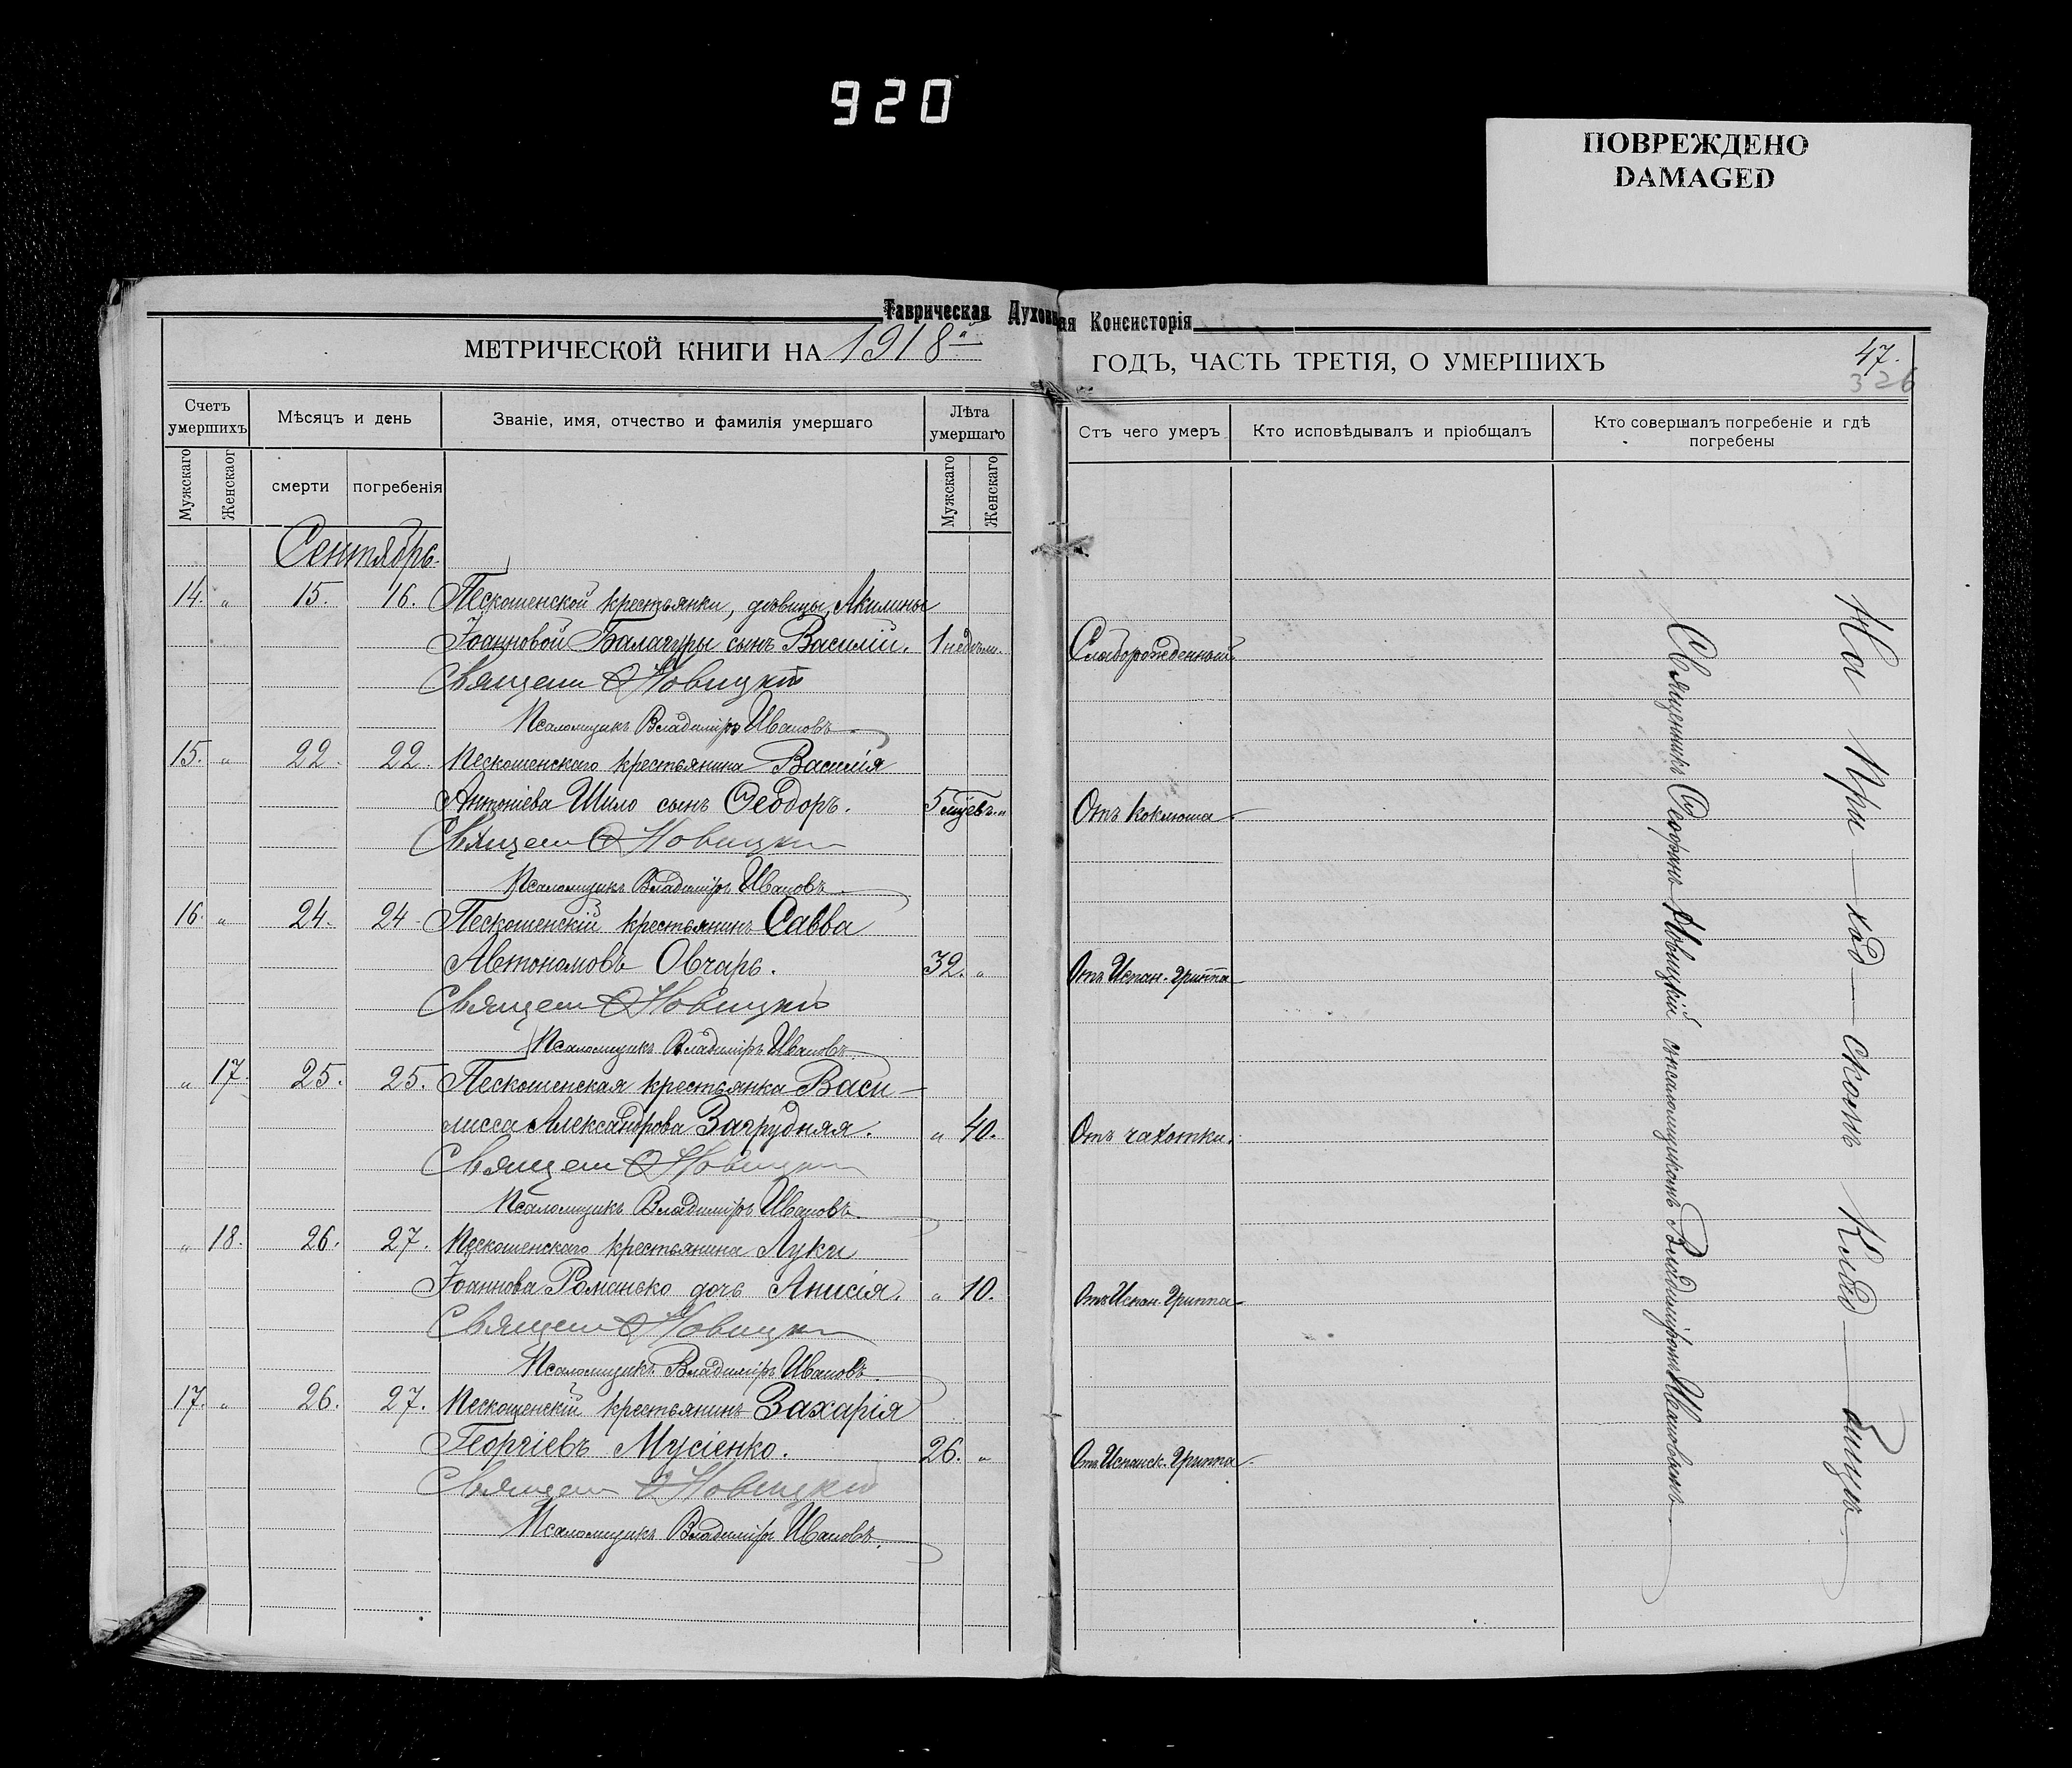 920
ПОВРЕЖДЕНО
DAMAGED
Таврическая Духовная Консисторія
МЕТРИЧЕСКОЙ КНИГИ НА 1918й
ГОДЪ, ЧАСТЬ ТРЕТІЯ, О УМЕРШИХЪ
47.
326
Счетъ умершихъ
Мѣсяцъ и день
Званіе, имя, отчество и фамилія умершаго
Лѣта умершаго
Стъ чего умеръ
Кто исповѣдывалъ и пріобщалъ
Кто совершалъ погребеніе и гдѣ
погребены
Мужскаго
Женскаог
смерти
погребенія
Мужскаго
Женскаго
Сентябрь.
14. " 15. 16. Пескошенской крестьянки, дѣвицы, Акилины
Іоанновой Балагуры сынъ Василій. 1 недѣли. Слаборожденный.
Священ Ѳ Новицкій
Псаломщикъ Владиміръ Ивановъ.
15. " 22. 22. Пескошенскаго крестьянина Василія
Антоніева Шило сынъ Ѳеодоръ. 5 мцевъ. " Отъ коклюша
Священ Ѳ Новицкій
Псаломщикъ Владиміръ Ивановъ.
16. " 24. 24. Пескошенскій крестьянинъ Савва
Автономовъ Овчарь. 32. " Отъ Испан. гриппа
Священ Ѳ Новицкій
Псаломщикъ Владиміръ Ивановъ
" 17. 25. 25. Пескошенская крестьянка Васи-
лисса Александрова Загрудняя. " 40. Отъ чахотки.
Священ Ѳ Новицкій
Псаломщикъ Владиміръ Ивановъ.
" 18. 26. 27. Пескошенскаго крестьянина Луки
Іоаннова Романько дочь Анисія. " 10. Отъ Испан. Гриппа
Священ Ѳ Новицкій
Псаломщикъ Владиміръ Ивановъ.
17. " 26. 27. Пескошенскій крестьянинъ Захарія
Георгіевъ Мусіенко. 26. " Отъ Испанск. Гриппа
Священ Ѳ Новицкій
Псаломщикъ Владиміръ Ивановъ.
Священникъ Новицкій съ псаломщикомъ Владиміромъ Ивановымъ
На При-ход-скомъ Клад-бищѣ